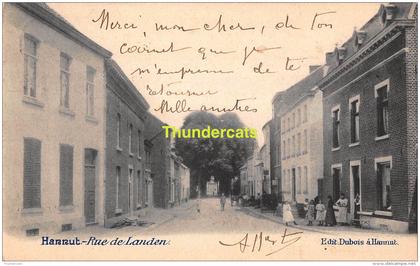 Merci, mon cher, de ton
carnet que je
m'empresse de te
retourner
Mille amitiés
Thundercats
Hannut.-Rue de Landen.
Edit. Dubois à Hannut.